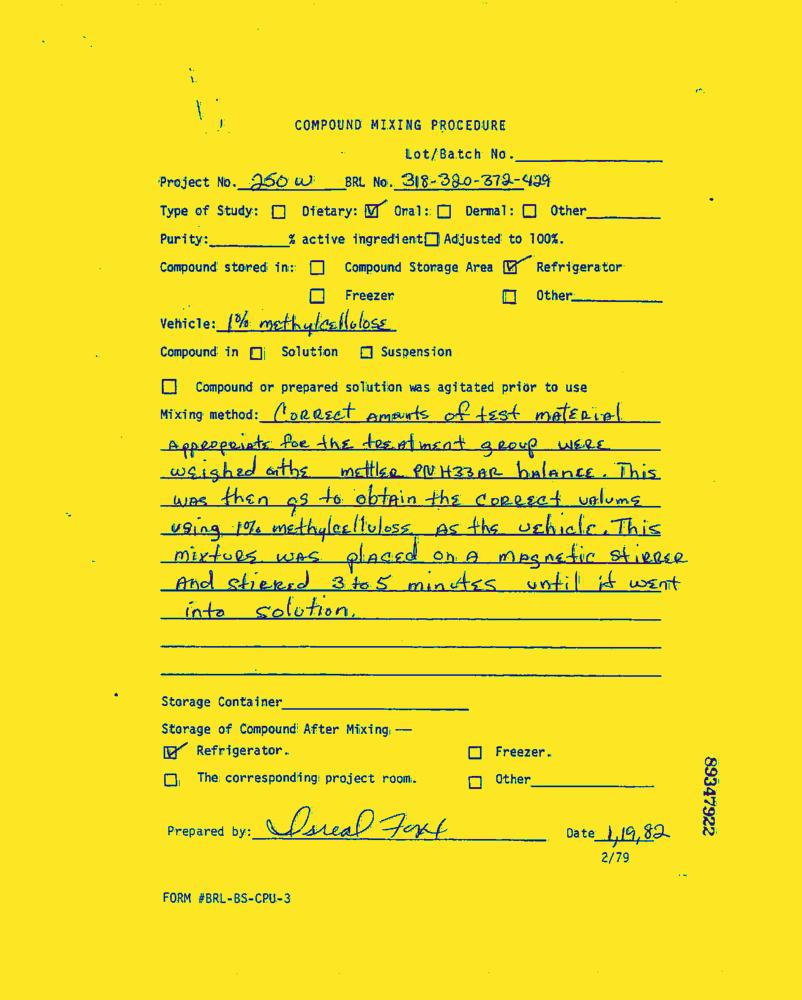 COMPOUND MIXING PROCEDURE
Lot/Batch No.
Project No. 250 W BRL No. 318-320-372-429
Type of Study: ☐ Dietary: ☑ Oral: ☐ Dermal: ☐ Other
Purity: % active ingredient ☐ Adjusted to 100%.
Compound stored in: ☐ Compound Storage Area ☑ Refrigerator
☐ Freezer ☐ Other
Vehicle: 1% methylcellulose
Compound in ☐ Solution ☐ Suspension
☐ Compound or prepared solution was agitated prior to use
Mixing method: Correct amounts of test material
Appropriate for the treatment group were
weighed on the mettler PN H33AR balance. This
was then qs to obtain the correct volume
using 1% methylcellulose as the vehicle. This
mixture was placed on a magnetic stirrer
And stirred 3 to 5 minutes until it went
into solution.
Storage Container
Storage of Compound After Mixing —
☑ Refrigerator. ☐ Freezer.
☐ The corresponding project room. ☐ Other
Prepared by: Date 1,19,82
2/79
FORM #BRL-BS-CPU-3
89347922